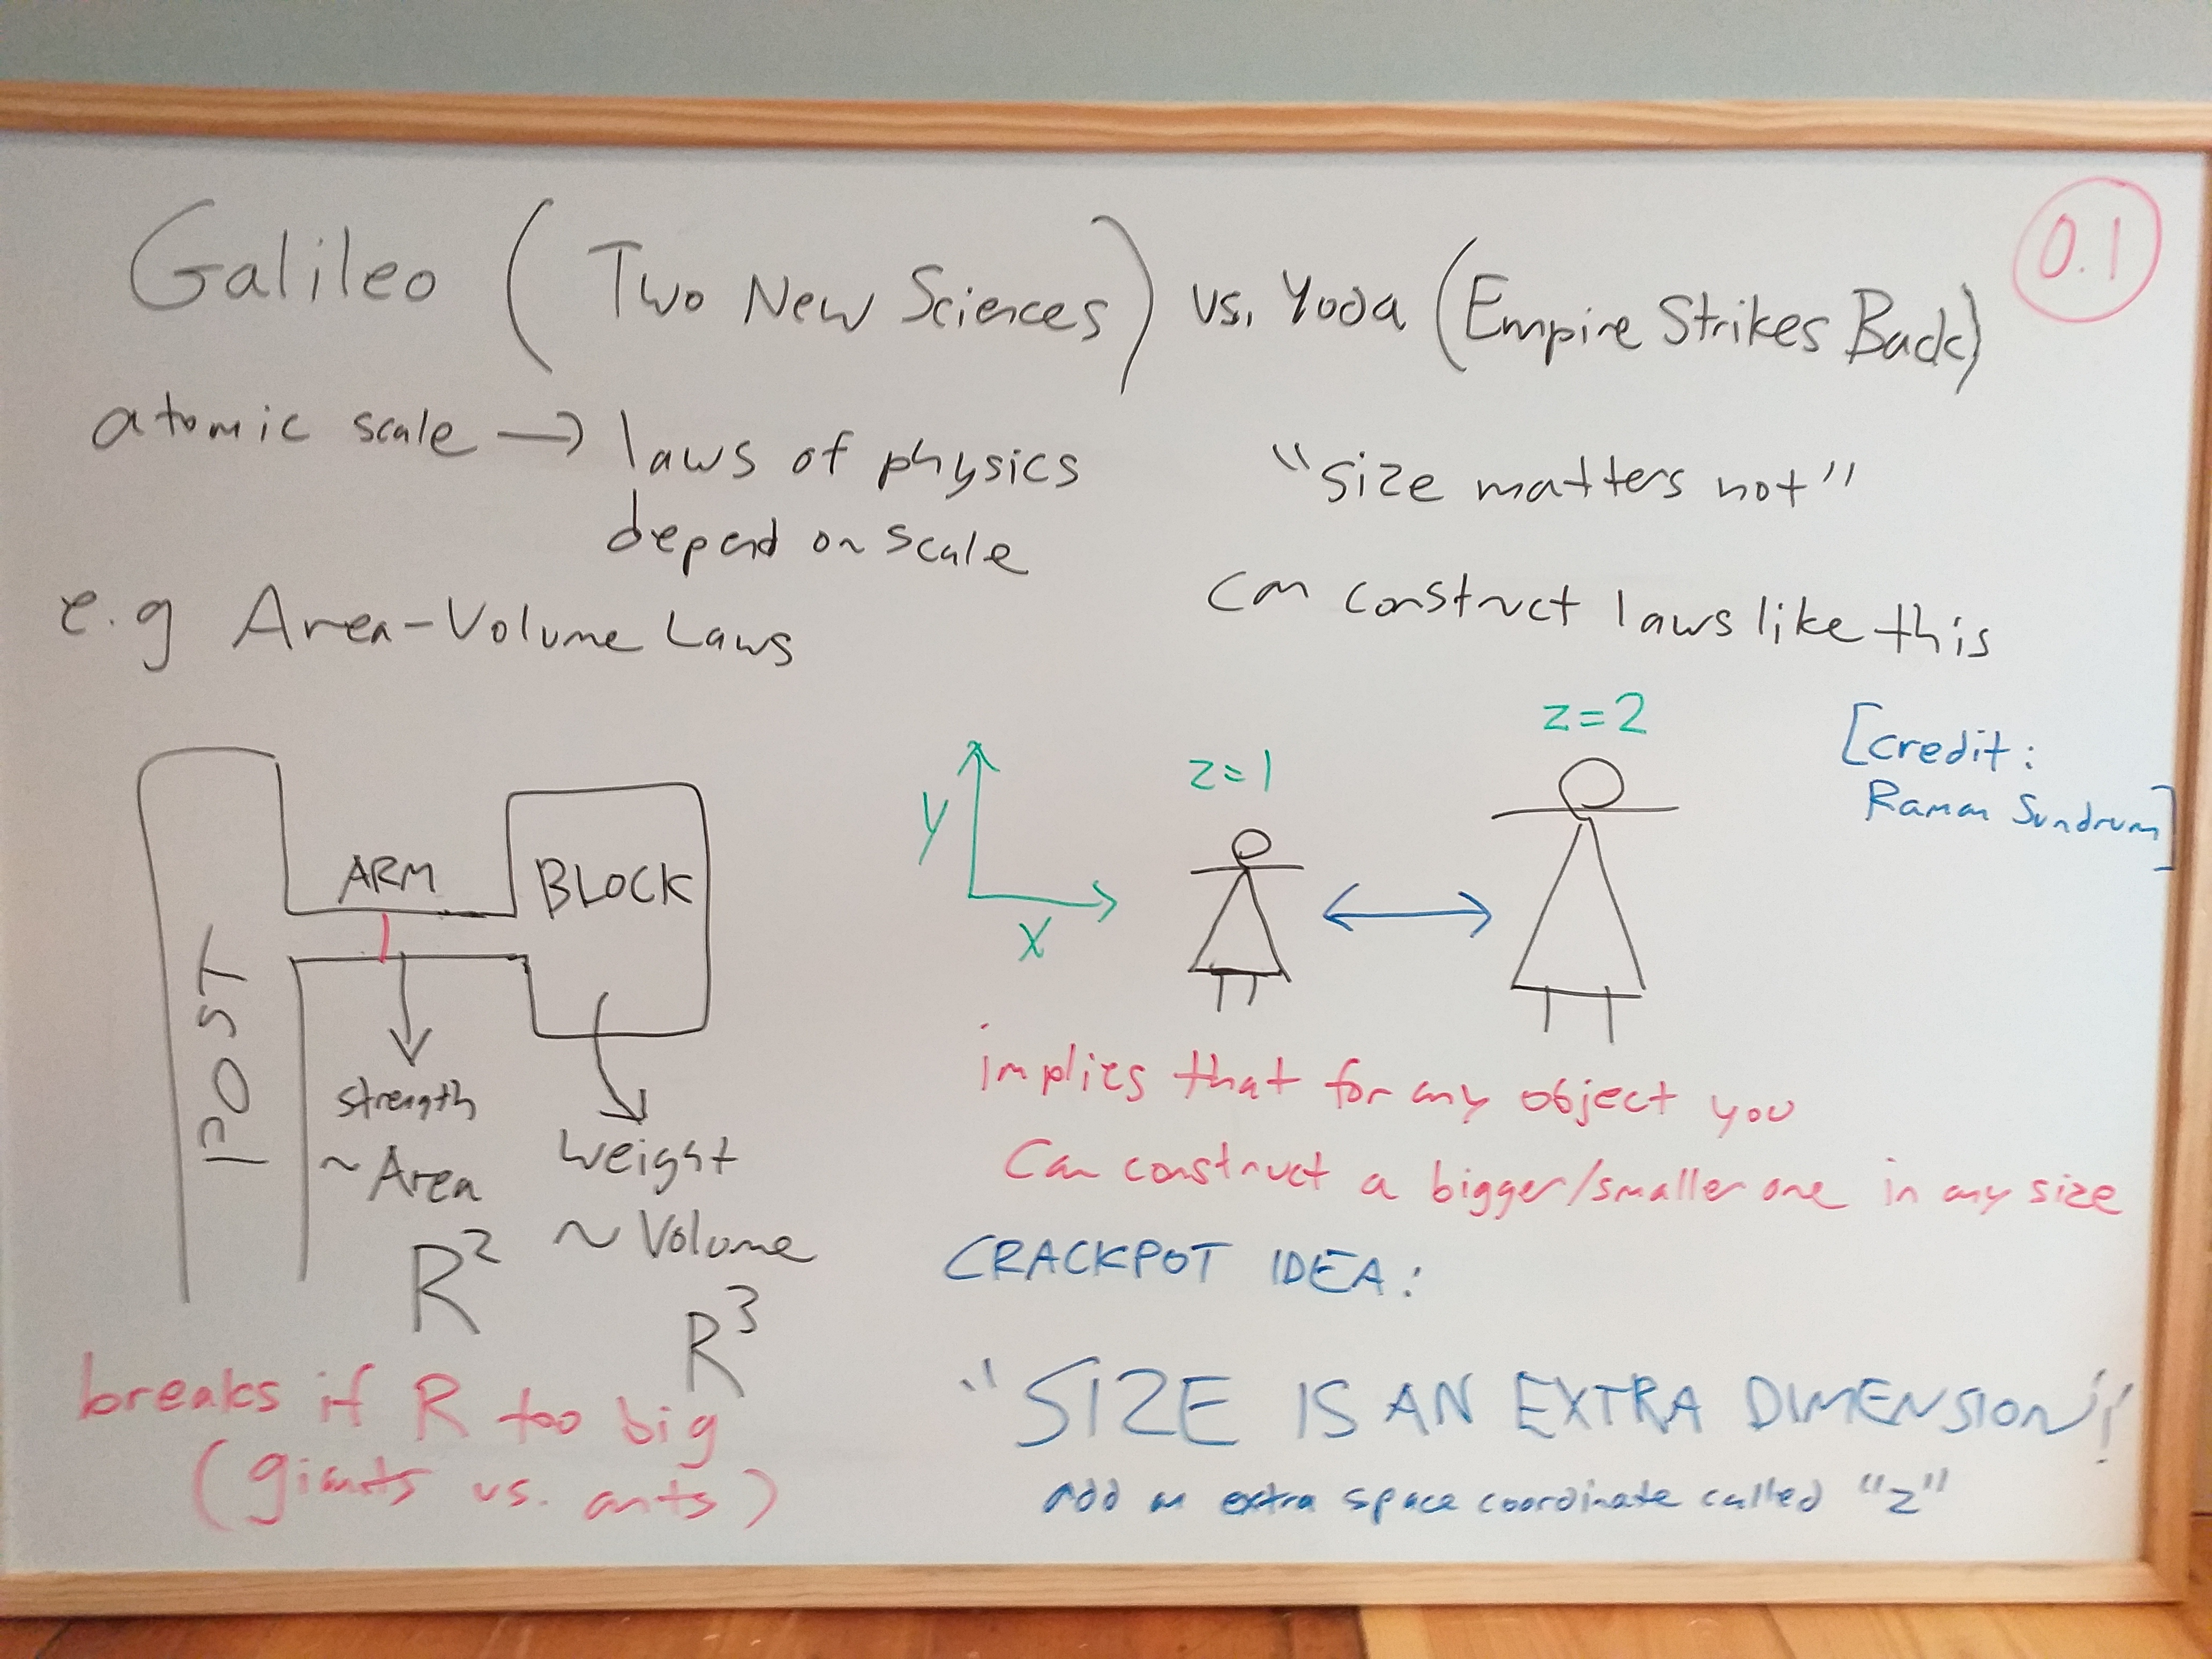 Galileo (Two New Sciences) vs. Yoda (Empire Strikes Back)
0.1
atomic scale → laws of physics
depend on scale
e.g Area-Volume Laws
POST
ARM
BLOCK
strength
~ Area
R²
weight
~ Volume
R³
breaks if R too big
(giants vs. ants)
"size matters not"
can construct laws like this
y
x
z=1
z=2
[credit:
Raman Sundrum]
implies that for any object you
can construct a bigger/smaller one in any size
CRACKPOT IDEA:
"SIZE IS AN EXTRA DIMENSION"!
add an extra space coordinate called "z"